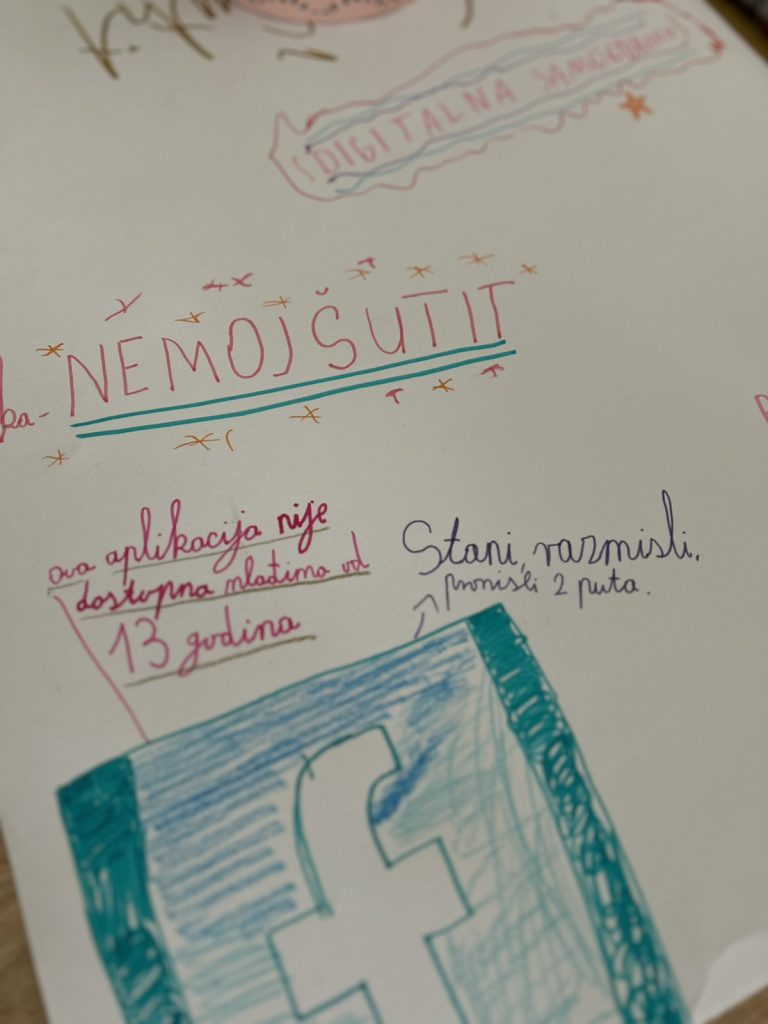 DIGITALNA
NEMOJ ŠUTIT
ova aplikacija nije
dostupna mlađima od
13 godina
Stani, razmisli,
promisli 2 puta.
f